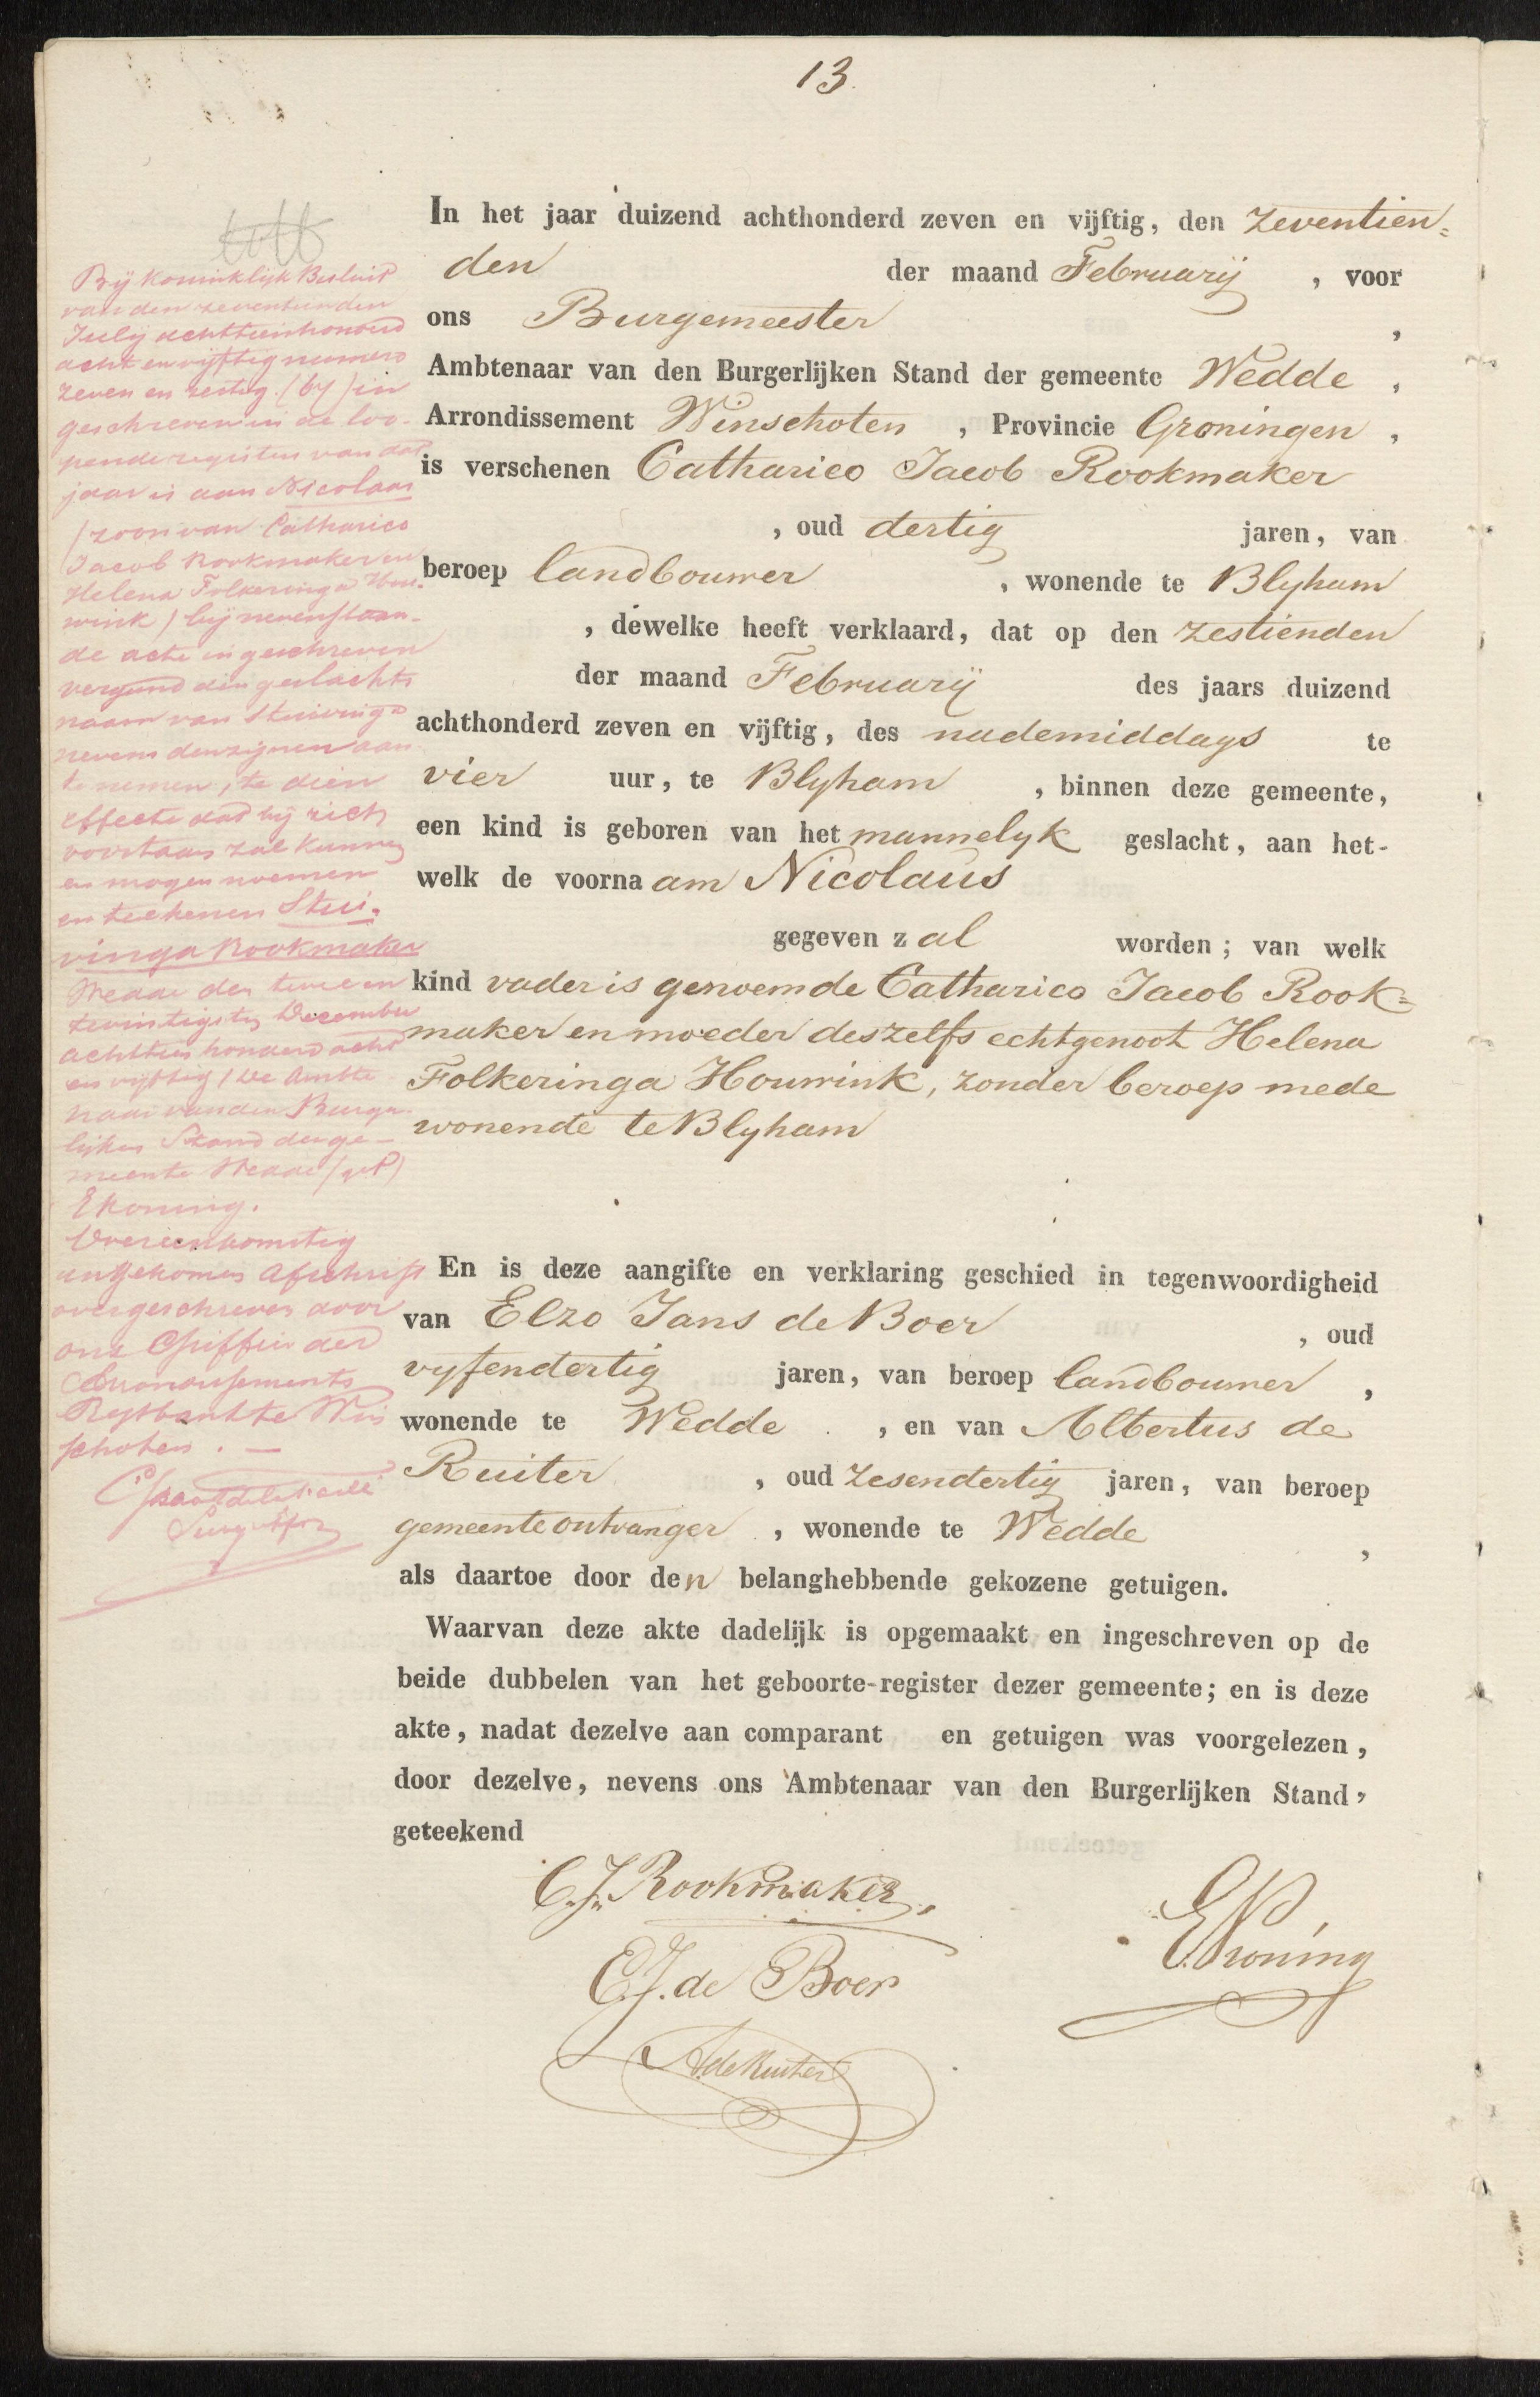 13.
In het jaar duizend achthonderd zeven en vijftig, den zeventien=
den der maand Februarij , voor
ons Burgemeester ,
Ambtenaar van den Burgerlijken Stand der gemeente Wedde ,
Arrondissement Winschoten , Provincie Groningen ,
is verschenen Catharico Jacob Rookmaker
, oud dertig jaren, van
beroep landbouwer , wonende te Blyham
, dewelke heeft verklaard, dat op den zestienden
der maand Februarij des jaars duizend
achthonderd zeven en vijftig, des nademiddags te
vier uur, te Blyham , binnen deze gemeente,
een kind is geboren van het mannelyk geslacht, aan het-
welk de voornaam Nicolaus
gegeven zal worden; van welk
kind vader is genoemde Catharico Jacob Rook=
maker en moeder deszelfs echtgenoot Helena
Folkeringa Houwink, zonder beroep mede
wonende te Blyham
En is deze aangifte en verklaring geschied in tegenwoordigheid
van Elzo Jans de Boer , oud
vyfendertig jaren, van beroep landbouwer ,
wonende te Wedde , en van Albertus de
Ruiter , oud zesendertig jaren, van beroep
gemeenteontvanger , wonende te Wedde ,
als daartoe door den belanghebbende gekozene getuigen.
Waarvan deze akte dadelijk is opgemaakt en ingeschreven op de
beide dubbelen van het geboorte-register dezer gemeente; en is deze
akte, nadat dezelve aan comparant en getuigen was voorgelezen,
door dezelve, nevens ons Ambtenaar van den Burgerlijken Stand,
geteekend
C.J. Rookmaker.
E.J. de Boer
EKoning
A. de Ruiter
Bij Koninklijk Besluit
van den zeventienden
Julij achttienhonderd
acht en vijftig numero
zeven en zestig (67) in
geschreven in de loo-
pende registers van dat
jaar is aan Nicolaas
(zoon van Catharico
Jacob Rookmaker en
Helena Folkeringa Hou-
wink) bij nevenstaan-
de acte ingeschreven
vergund den geslachts
naam van Stuivinga
nevens den zijnen aan
te nemen, te dien
effecte dat hij zich
voortaan zal kunnen
en mogen noemen
en teekenen Stui-
vinga Rookmaker
Wedde den twee en
twintigsten December
achttien honderd acht
en vijftig / De Ambte
naar van den Burger
lijken Stand der ge-
meente Wedde (get)
EKoning.
Overeenkomstig
ontvekomen Afschrift
overgeschreven door
ons Griffier der
Arrondissements
Regtbankte Win
schoten. —